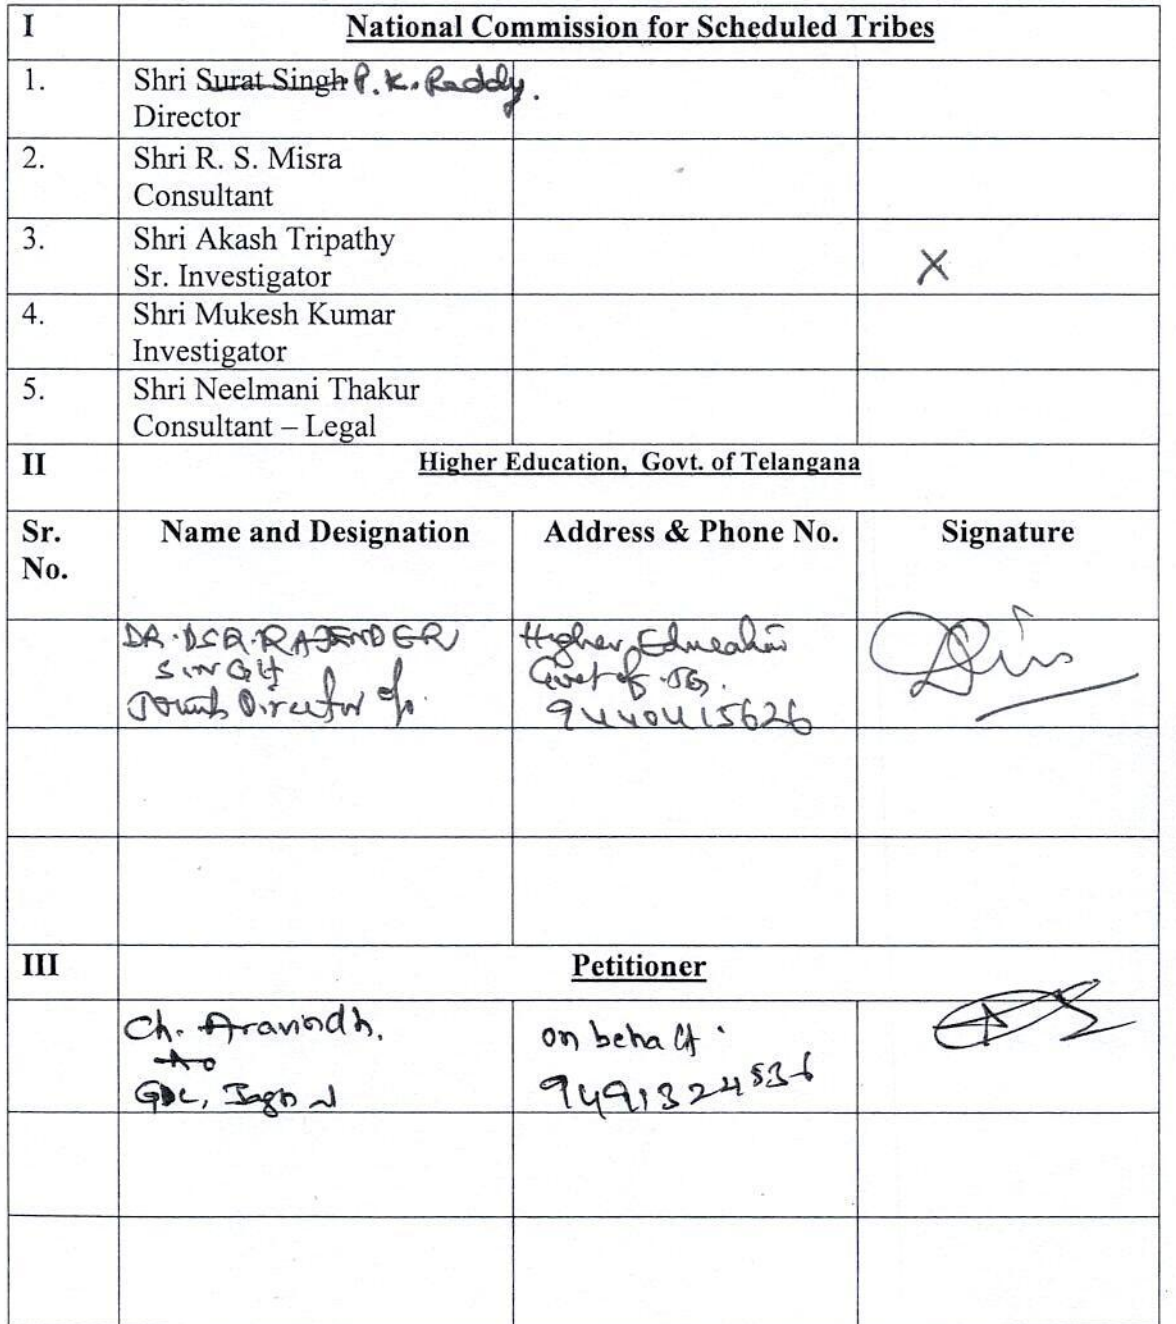 I National Commission for Scheduled Tribes
1. Shri Surat Singh P. K. Reddy.
Director
2. Shri R. S. Misra
Consultant
3. Shri Akash Tripathy
Sr. Investigator X
4. Shri Mukesh Kumar
Investigator
5. Shri Neelmani Thakur
Consultant – Legal
II Higher Education, Govt. of Telangana
Sr. Name and Designation Address & Phone No. Signature
No.
DR. DSR. RAJENDER Higher Education
SINGH Govt of TG.
Joint Director 9440415626
III Petitioner
Ch. Aravindh, on behalf
GDC, 9491324536